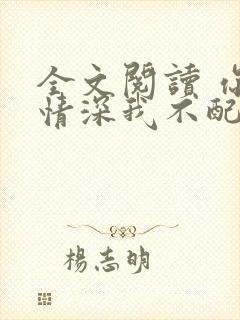 全文閱讀 你
情深我不配
楊志明